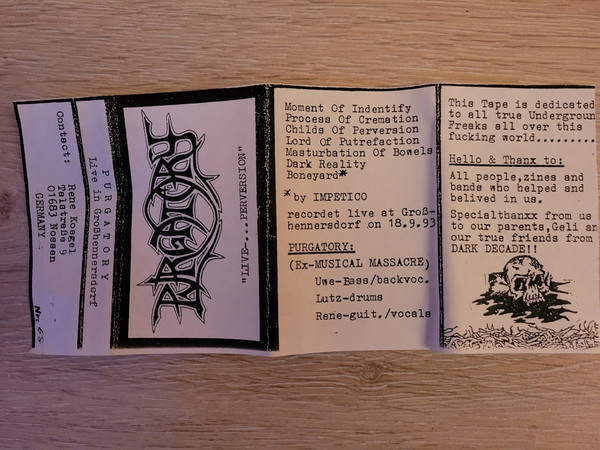 Contact:
Rene Koegel
Talstrasse 9
01683 Nossen
GERMANY
Nr. 65
PURGATORY
Live in Großhennersdorf
PURGATORY
"LIVE-....PERVERSION"
Moment Of Indentify
Process Of Cremation
Childs Of Perversion
Lord Of Putrefaction
Masturbation Of Bowels
Dark Reality
Boneyard*
*by IMPETICO
recordet live at Groß-
hennersdorf on 18.9.93
PURGATORY:
(Ex-MUSICAL MASSACRE)
Uwe-Bass/backvoc.
Lutz-drums
Rene-guit./vocals
This Tape is dedicated
to all true Undergroun
Freaks all over this
fucking world.........
Hello & Thanx to:
All people,zines and
bands who helped and
belived in us.
Specialthanxx from us
to our parents,Geli an
our true friends from
DARK DECADE!!